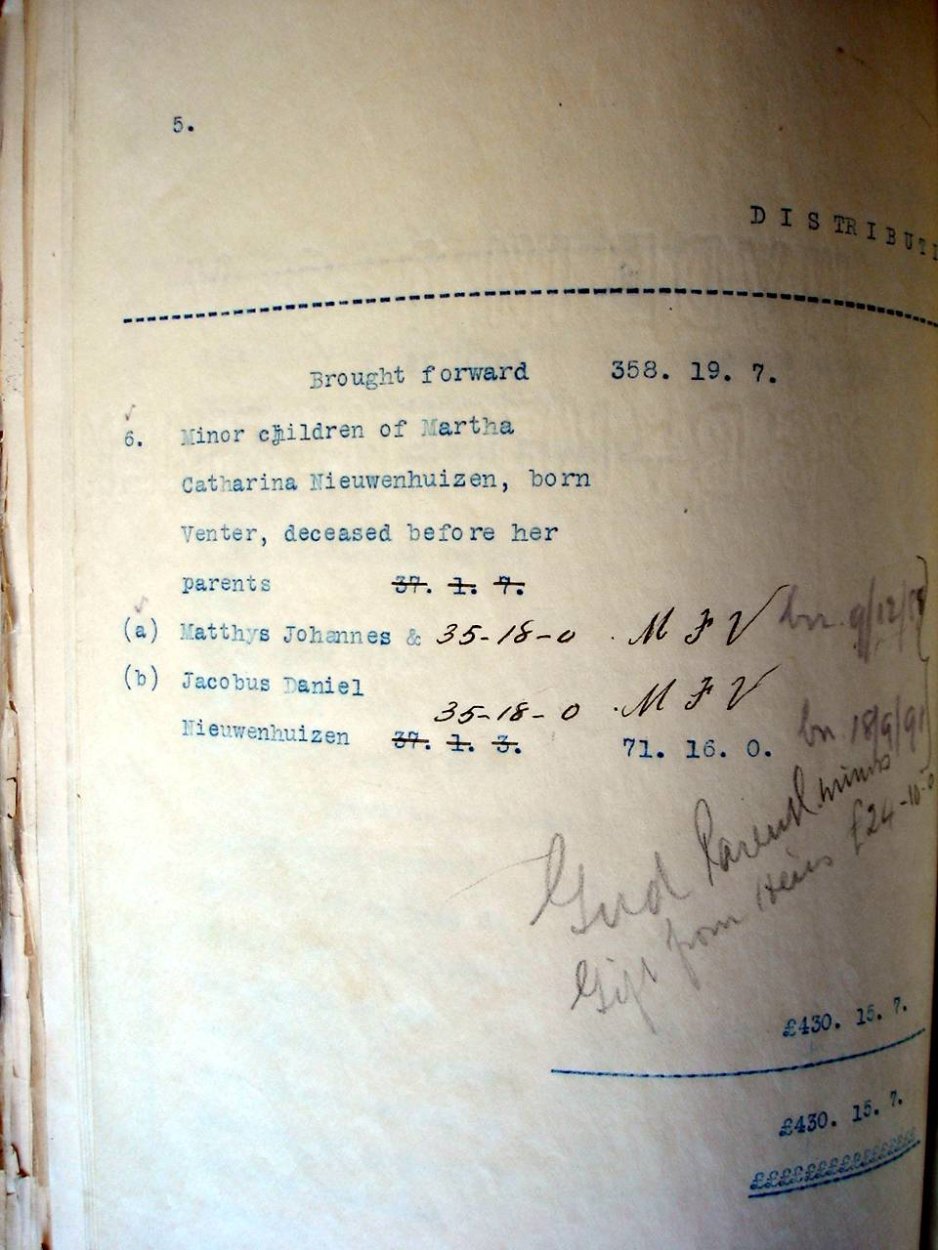 5.
DISTRIBUTI
Brought forward 358. 19. 7.
6. Minor children of Martha
Catharina Nieuwenhuizen, born
Venter, deceased before her
parents 37. 1. 7.
(a) Matthys Johannes & 35-18-0 . M F V bn 9/12/
(b) Jacobus Daniel
35-18-0 . M F V
Nieuwenhuizen 37. 1. 3. 71. 16. 0. bn 18/9/91
Parent
Gift from Heirs £24-10-0
£430. 15. 7.
£430. 15. 7.
££££££££££££££££